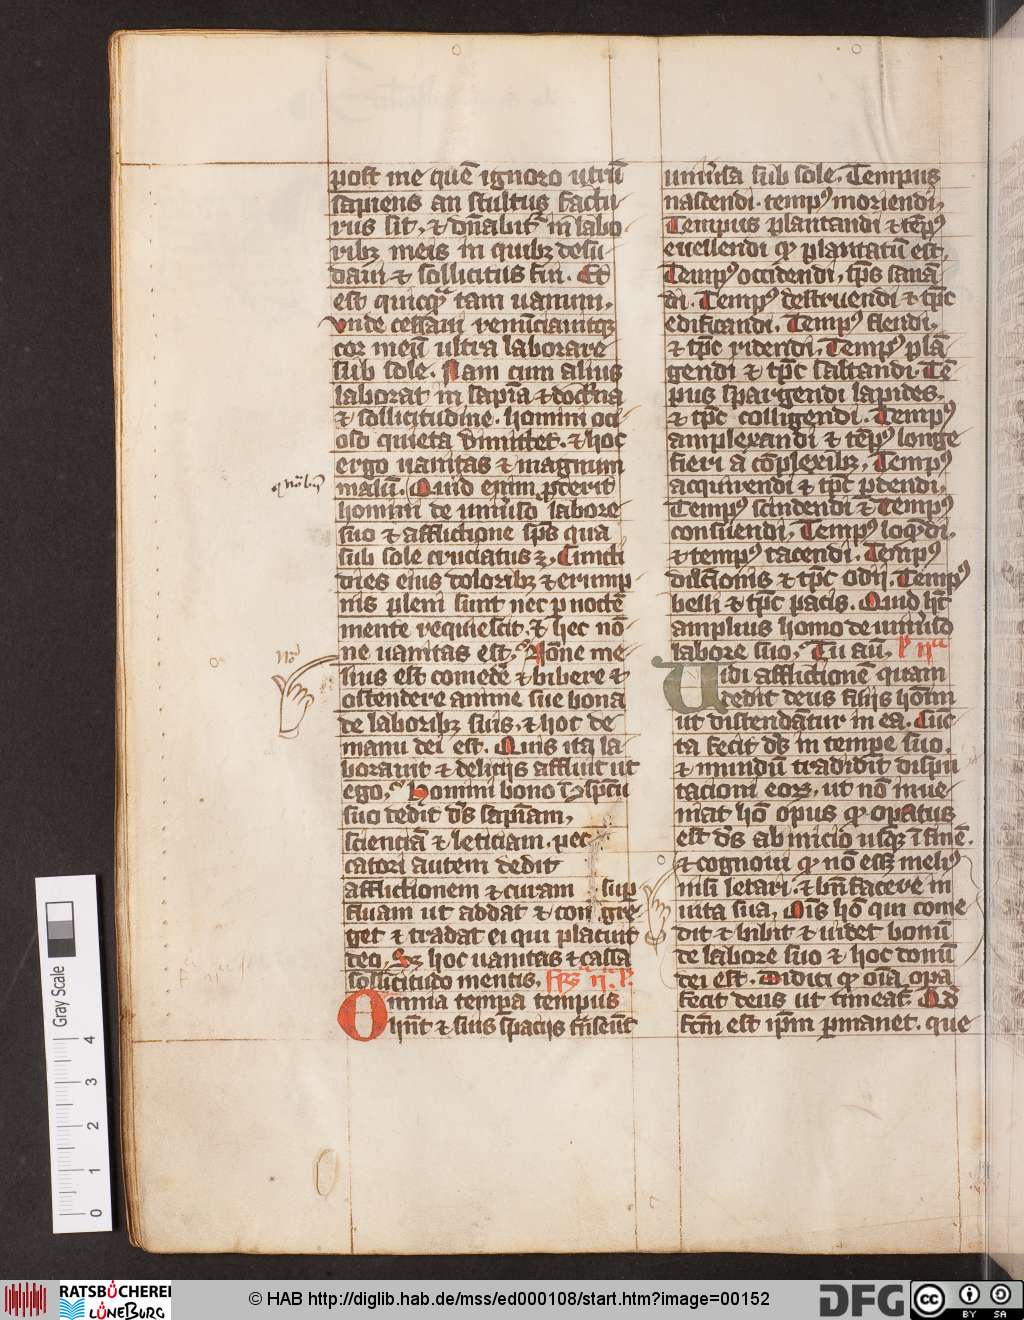 post me quē ignoro utrū
sapiens an stultus factu
rus sit, ⁊ dn̄abit᷑ in labo
ribꝫ meis in quibꝫ desu
daui ⁊ sollicitus fui. Et
est quicq̄ tam uanum.
vnde cessaui renūciauitqꝫ
cor meū ultra laborare
sub sole. Nam cum alius
laborat in sapīa ⁊ doctīna
⁊ sollicitudine. homini oci
oso quieta dimittet. ⁊ hoc
ergo uanitas ⁊ magnum
malū. Quid enim ꝓderit
homini de uniūso labore
suo ⁊ afflictione sp̄s qua
sub sole cruciatus ꝫ. Cuncti
dies eius doloribꝫ ⁊ erump
nis pleni sunt nec p noctē
mente requiescit. ⁊ hec nō
ne uanitas est. Nōne me
lius est comedē ⁊ bibere ⁊
ostendere anime sue bona
de laboribꝫ suis, ⁊ hoc de
manu dei est. Quis ita la
borauit ⁊ deliciis affluit ut
ego. Homini bono ī ꝯspc̄tu
suo dedit ds̄ sapn̄am,
scienciā ⁊ leticiam. pec
catori autem dedit
afflictionem ⁊ curam sup
fluam ut addat ⁊ con gre
get ⁊ tradat ei qui placuit
deo, Sꝫ hoc uanitas ⁊ cassa
sollicitudo mentis.
Omnia tempa tempus
hn̄t ⁊ suis spaciis tn̄seūt
uniūsa sub sole. Tempus
nascendi. tempꝰ moriendi,
Tempus plantandi ⁊ tēpꝰ
euellendi qꝫ plantatū est.
Tempꝰ occidendi, tp̄s sanā
di. Tempꝰ destruendi ⁊ tp̄c
edificandi. Tempꝰ flendi,
⁊ tp̄c ridendi. Tempꝰ plā
gendi ⁊ tp̄c saltandi. Tē
pus spargendi lapides,
⁊ tp̄c colligendi. Tempꝰ
amplexandi ⁊ tēpꝰ longe
fieri a cōplexibꝫ, Tempꝰ
acquirendi ⁊ tp̄c pdendi.
Tempꝰ scindendi ⁊ Tempꝰ
consuendi, Tempꝰ loqn̄di,
⁊ tempꝰ tacendi. Tempꝰ
dilcīonis ⁊ tp̄c odij. Tempꝰ
belli ⁊ tp̄c pacis. Quid ht̄
amplius homo de uniūso
labore suo. Tu au,
Uidi afflictionē quam
dedit deus filijs hoīm
ut distendātur in ea. Cūc
ta fecit ds̄ in tempe suo,
⁊ mundū tradidit dispu
tacioni eoꝝ, ut nō inue
niat hō opus qꝫ opatus
est ds̄ ab inicio usqꝫ ī finē.
⁊ cognoui qꝫ nō essꝫ meliꝰ
nisi letari. ⁊ bn̄ facere in
uita sua, Oīs hō qui come
dit ⁊ bibit ⁊ uidet bonū
de labore suo ⁊ hoc donū
dei est. Didici qꝫ oīa opa
fecit deus ut timeat᷑. Qd̄
fcm̄ est ip̄m pmanet. que
Gray Scale
4
3
2
1
0
RATSBÜCHEREI
LÜNEBURG
© HAB http://diglib.hab.de/mss/ed000108/start.htm?image=00152
DFG
cc
BY SA